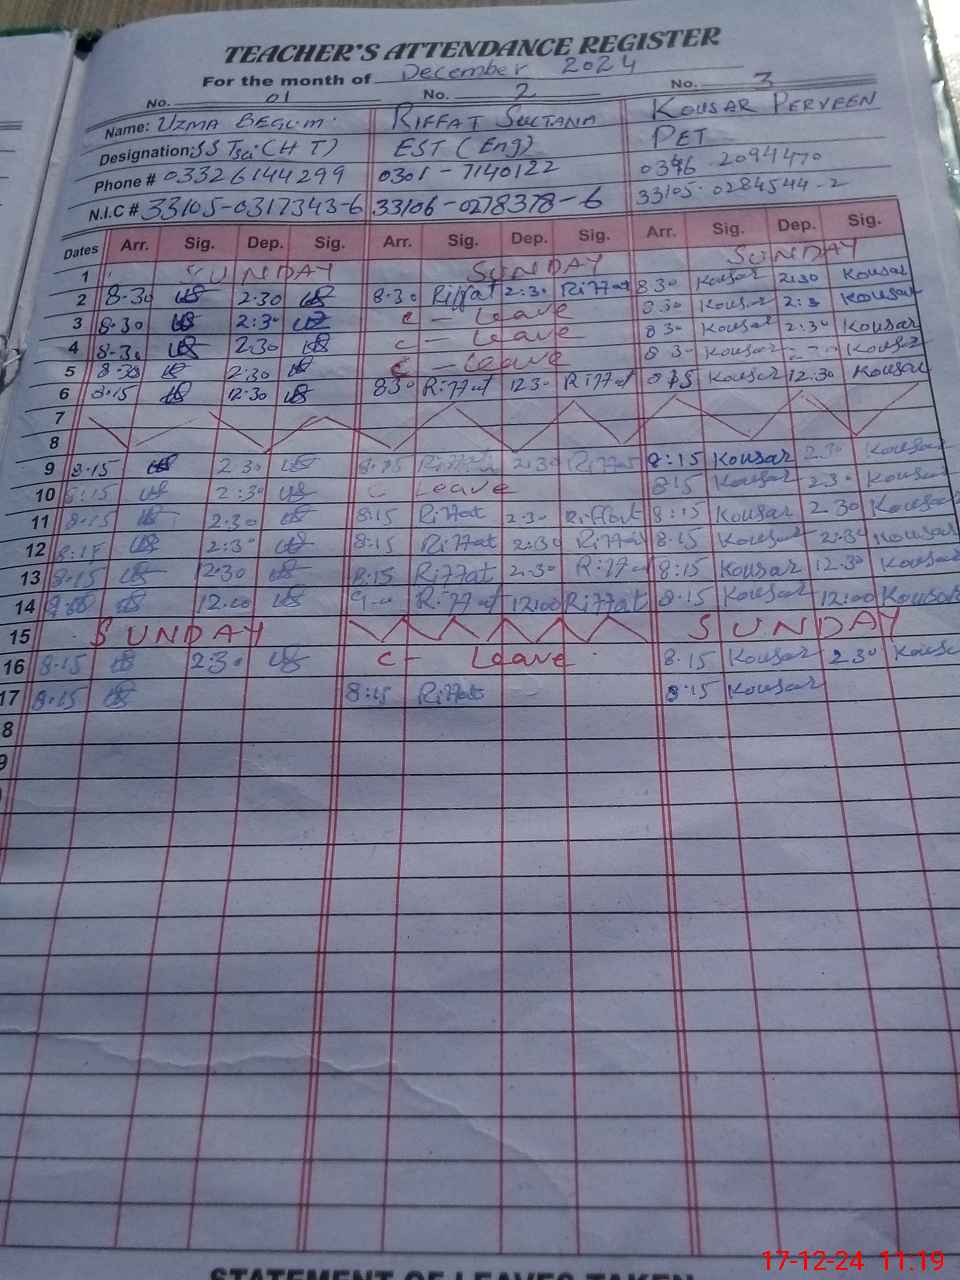 TEACHER'S ATTENDANCE REGISTER
For the month of December 2024
No. 01 No. 2 No. 3
Name: UZMA BEGUM. RIFFAT SULTANA KOUSAR PERVEEN
Designation: SS Tsci (H T) EST (Eng) PET
Phone # 03326144299 0301-7140122 0346 2094470
N.I.C # 33105-0317343-6 33106-0278378-6 33105-0284544-2
Dates Arr. Sig. Dep. Sig. Arr. Sig. Dep. Sig. Arr. Sig. Dep. Sig.
1 SUNDAY SUNDAY SUNDAY
2 8.30 2.30 8.30 Riffat 2:30 Riffat 8 30 Kousar 2:30 Kousar
3 8.30 2:30 C - Leave 8 30 Kousar 2:3 Kousar
4 8.30 2.30 C - Leave 8 30 Kousar 2:30 Kousar
5 8.30 2:30 C - Leave 8 30 Kousar Kousar
6 8.15 12.30 8.30 Riffat 12 30 Riffat Kousar 12.30 Kousar
7
8
9 8.15 2.30 8.15 Riffat 2:30 Riffat 8:15 Kousar 2.30 Kousar
10 8:15 2:30 C Leave 8:15 Kousar 2.30 Kousar
11 8.15 2.30 8:15 Riffat 2:30 Riffat 8:15 Kousar 2.30 Kousar
12 2:30 8:15 Riffat 2:30 Riffat 8:15 Kousar 2:30 Kousar
13 8.15 12.30 8:15 Riffat 2.30 Riffat 8:15 Kousar 12.30 Kousar
14 12.00 Riffat 12:00 Riffat 8:15 Kousar 12:00 Kousar
15 SUNDAY SUNDAY
16 8.15 2:30 C - Leave 8.15 Kousar 2.30 Kousar
17 8.15 8:15 Riffat 8:15 Kousar
8
9
STATEMENT OF LEAVES TAKEN
17-12-24 11:19